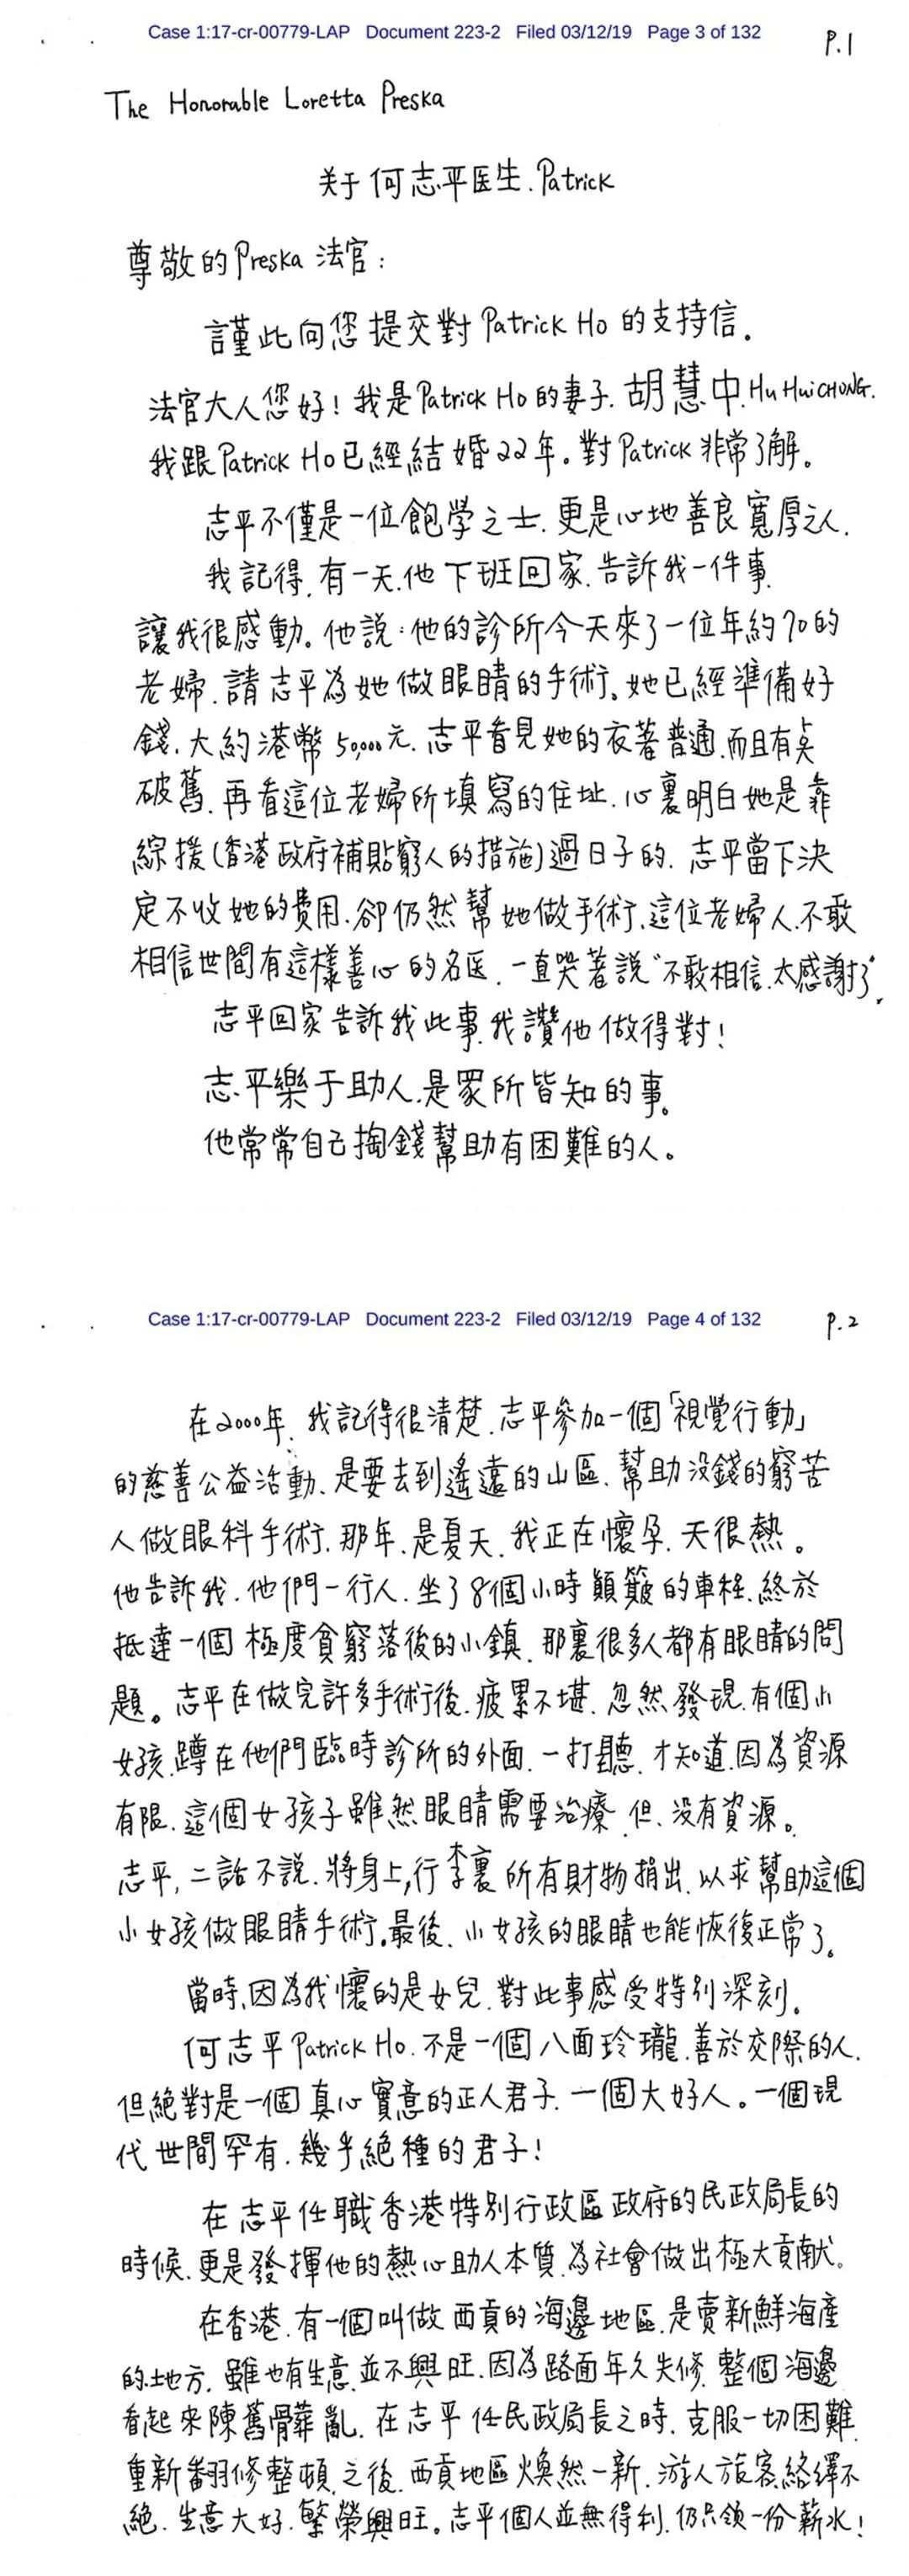 Case 1:17-cr-00779-LAP Document 223-2 Filed 03/12/19 Page 3 of 132
P.1
The Honorable Loretta Preska
关于何志平医生.Patrick
尊敬的Preska 法官：
謹此向您提交對Patrick Ho的支持信。
法官大人您好！我是Patrick Ho的妻子.胡慧中.Hu HuiCHONG.
我跟Patrick Ho已經結婚22年。對Patrick非常了解。
志平不僅是一位飽学之士.更是心地善良寬厚之人.
我記得.有一天.他下班回家.告訴我一件事.
讓我很感動。他説：他的診所今天來了一位年約70的
老婦.請志平為她做眼睛的手術。她已經準備好
錢.大約港幣50,000元.志平看見她的衣著普通.而且有点
破舊.再看這位老婦所填寫的住址.心裏明白她是靠
綜援(香港政府補貼窮人的措施)過日子的.志平當下決
定不收她的費用.卻仍然幫她做手術.這位老婦人.不敢
相信世間有這樣善心的名医.一直哭著説"不敢相信.太感謝了".
志平回家告訴我此事.我讚他做得對！
志平樂于助人.是眾所皆知的事。
他常常自己掏錢幫助有困難的人。
Case 1:17-cr-00779-LAP Document 223-2 Filed 03/12/19 Page 4 of 132
P.2
在2000年.我記得很清楚.志平參加一個「視覺行動」
的慈善公益活動、是要去到遙遠的山區.幫助没錢的窮苦
人做眼科手術.那年.是夏天.我正在懷孕.天很熱。
他告訴我.他們一行人.坐了8個小時顛簸的車程.終於
抵達一個極度貧窮落後的小鎮.那裏很多人都有眼睛的問
題。志平在做完許多手術後.疲累不堪.忽然發現.有個小
女孩.蹲在他們臨時診所的外面.一打聽.才知道.因為資源
有限.這個女孩子雖然眼睛需要治療.但.没有資源。
志平,二話不説.將身上,行李裏所有財物捐出.以求幫助這個
小女孩做眼睛手術。最後、小女孩的眼睛也能恢復正常了。
當時.因為我懷的是女兒.對此事感受特别深刻。
何志平Patrick Ho.不是一個八面玲瓏.善於交際的人.
但絶對是一個真心實意的正人君子.一個大好人。一個現
代世間罕有.幾乎絶種的君子！
在志平任職香港特别行政區政府的民政局長的
時候.更是發揮他的熱心助人本質.為社會做出極大貢献。
在香港.有一個叫做西貢的海邊地區.是賣新鮮海產
的地方.雖也有生意.並不興旺.因為路面年久失修.整個海邊
看起來陳舊髒亂.在志平任民政局長之時.克服一切困難.
重新翻修整頓.之後.西貢地區煥然一新.游人旅客絡繹不
絶.生意大好.繁榮興旺。志平個人並無得利.仍只领一份薪水！